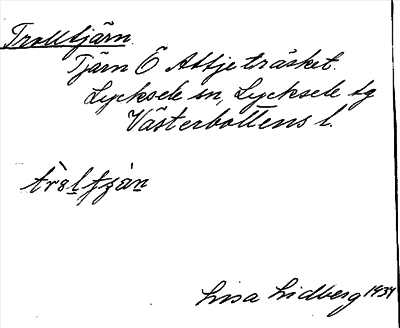 Trolltjärn.
Tjärn Ö Attjeträsket.
Lycksele sn, Lycksele sg
Västerbottens l.
Lisa Lidberg 1934